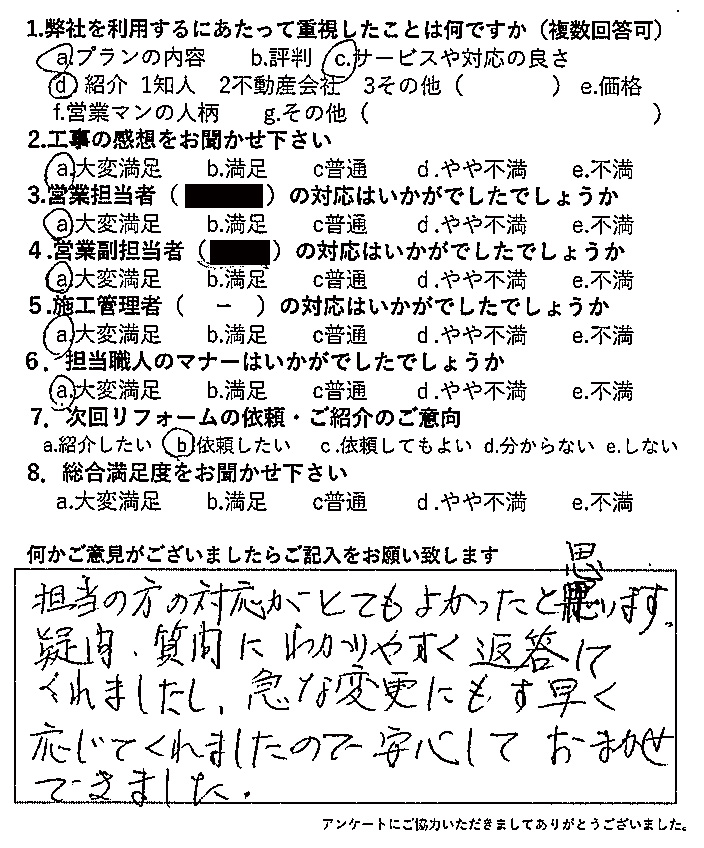 1.弊社を利用するにあたって重視したことは何ですか（複数回答可）
a.プランの内容 b.評判 c.サービスや対応の良さ
d.紹介 1知人 2不動産会社 3その他（ ）e.価格
f.営業マンの人柄 g.その他（ ）
2.工事の感想をお聞かせ下さい
a.大変満足 b.満足 c普通 d.やや不満 e.不満
3.営業担当者（ ）の対応はいかがでしたでしょうか
a.大変満足 b.満足 c普通 d.やや不満 e.不満
4.営業副担当者（ ）の対応はいかがでしたでしょうか
a.大変満足 b.満足 c普通 d.やや不満 e.不満
5.施工管理者（ ー ）の対応はいかがでしたでしょうか
a.大変満足 b.満足 c普通 d.やや不満 e.不満
6．担当職人のマナーはいかがでしたでしょうか
a.大変満足 b.満足 c普通 d.やや不満 e.不満
7．次回リフォームの依頼・ご紹介のご意向
a.紹介したい b.依頼したい c.依頼してもよい d.分からない e.しない
8．総合満足度をお聞かせ下さい
a.大変満足 b.満足 c普通 d.やや不満 e.不満
何かご意見がございましたらご記入をお願い致します
担当の方の対応がとてもよかったと思います。
疑問、質問にわかりやすく返答して
くれましたし、急な変更にもす早く
応じてくれましたので安心しておまかせ
できました.
アンケートにご協力いただきましてありがとうございました。